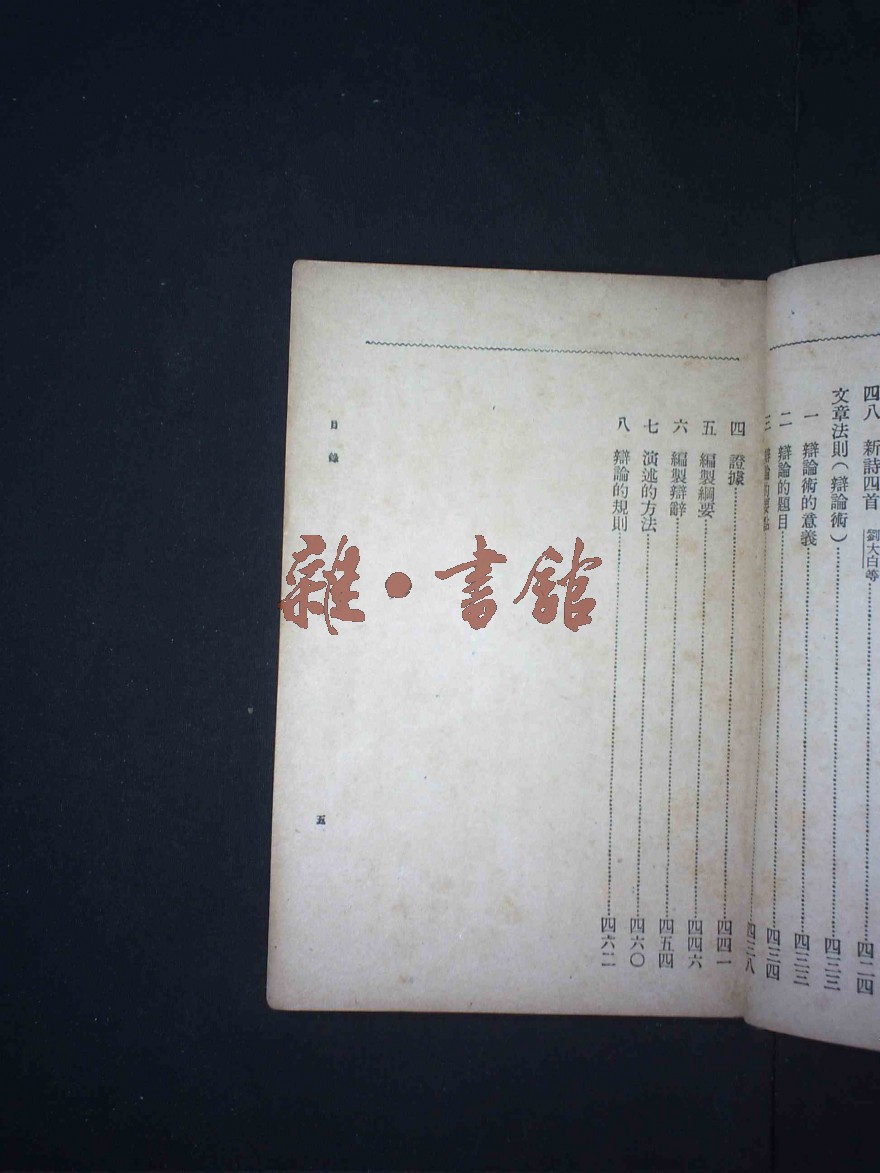 四八 新詩四首 劉大白等 四二四
文章法則(辯論術) 四三三
一 辯論術的意義 四三三
二 辯論的題目 四三四
三 辯論的要點 四三八
四 證據 四四一
五 編製綱要 四四六
六 編製辯辭 四五四
七 演述的方法 四六〇
八 辯論的規則 四六二
目錄
五
雜·書館